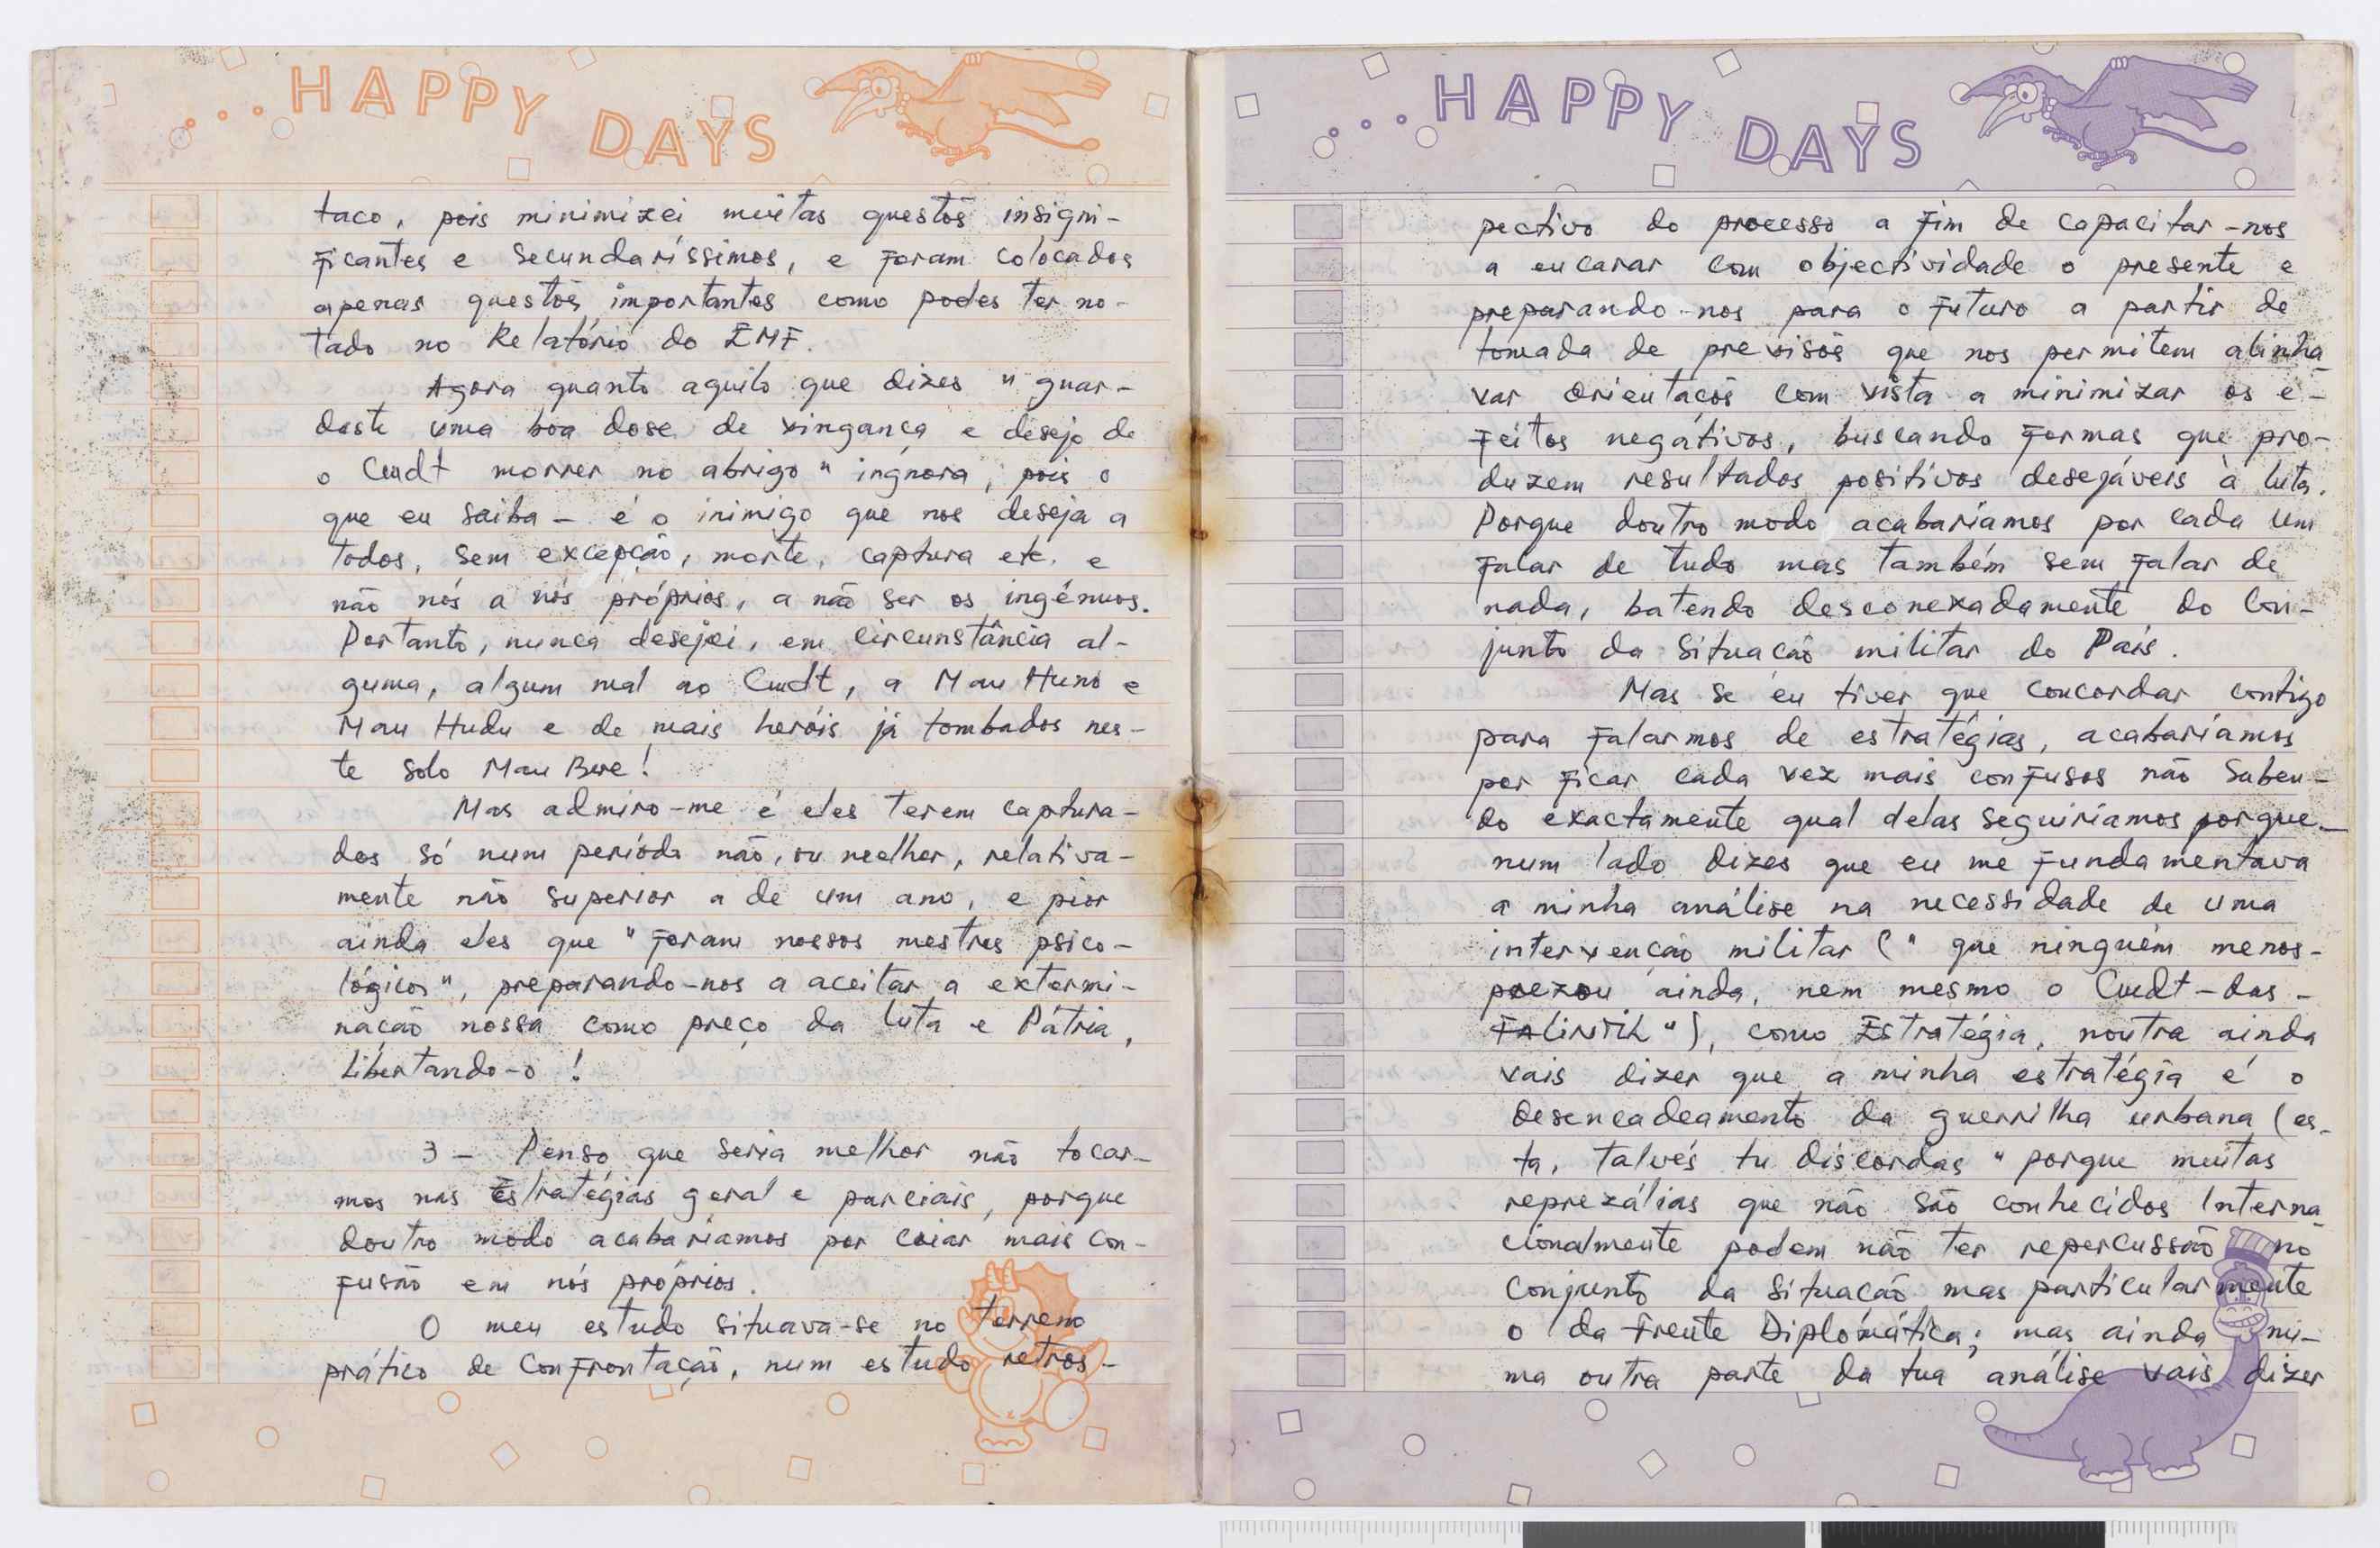 ...HAPPY DAYS
taco, pois minimizei muitas questōs insigni-
ficantes e secundaríssimos, e foram colocados
apenas questōs importantes como podes ter no-
tado no Relatório do EMF.
Agora quanto aquilo que dizes "guar-
daste uma boa dose de vingança e desejo de
o Cmdt morrer no abrigo" ingnora, pois o
que eu saiba - é o inimigo que nos deseja a
todos, sem excepção, morte, captura etc. e
não nós a nós próprios, a não ser os ingénuos.
Portanto, nunca desejei, em circunstância al-
guma, algum mal ao Cmdt, a Mau Huno e
Mau Hudu e de mais heróis já tombados nes-
te solo Mau Bere!
Mas admiro-me é eles terem captura-
dos só num período não, ou melhor, relativa-
mente não superior a de um ano, e pior
ainda eles que "foram nossos mestres psico-
lógicos", preparando-nos a aceitar a extermi-
nação nossa como preço da luta e Pátria,
libertando-o!
3 - Penso que seria melhor não tocar-
mos nas Estratégias geral e parciais, porque
doutro modo acabariamos por criar mais con-
fusão em nós próprios.
O meu estudo situava-se no terreno
prático de confrontação, num estudo retros-
...HAPPY DAYS
pectivo do processo a fim de capacitar-nos
a encarar com objectividade o presente e
preparando-nos para o futuro a partir de
tomada de previsōs que nos permitem alinha-
var orientaçōs com vista a minimizar os e-
feitos negátivos, buscando formas que pro-
duzem resultados positivos desejáveis à luta.
Porque doutro modo acabariamos por cada um
falar de tudo mas também sem falar de
nada, batendo desconexadamente do con-
junto da situação militar do País.
Mas se eu tiver que concordar contigo
para falarmos de estratégias, acabaríamos
por ficar cada vez mais confusos não saben-
do exactamente qual delas seguiríamos porque
num lado dizes que eu me fundamentava
a minha análise na necessidade de uma
intervenção militar ("que ninguém menos-
prezou ainda, nem mesmo o Cmdt-das-
FALINTIL"), como Estratégia, noutra ainda
vais dizer que a minha estratégia é o
desencadeamento da guerrilha urbana (es-
ta, talvés tu discordas "porque muitas
reprezálias que não são conhecidos Interna-
cionalmente podem não ter repercussão no
conjunto da situação mas particularmente
o da frente Diplomática; mas ainda nu-
ma outra parte da tua análise vais dizer